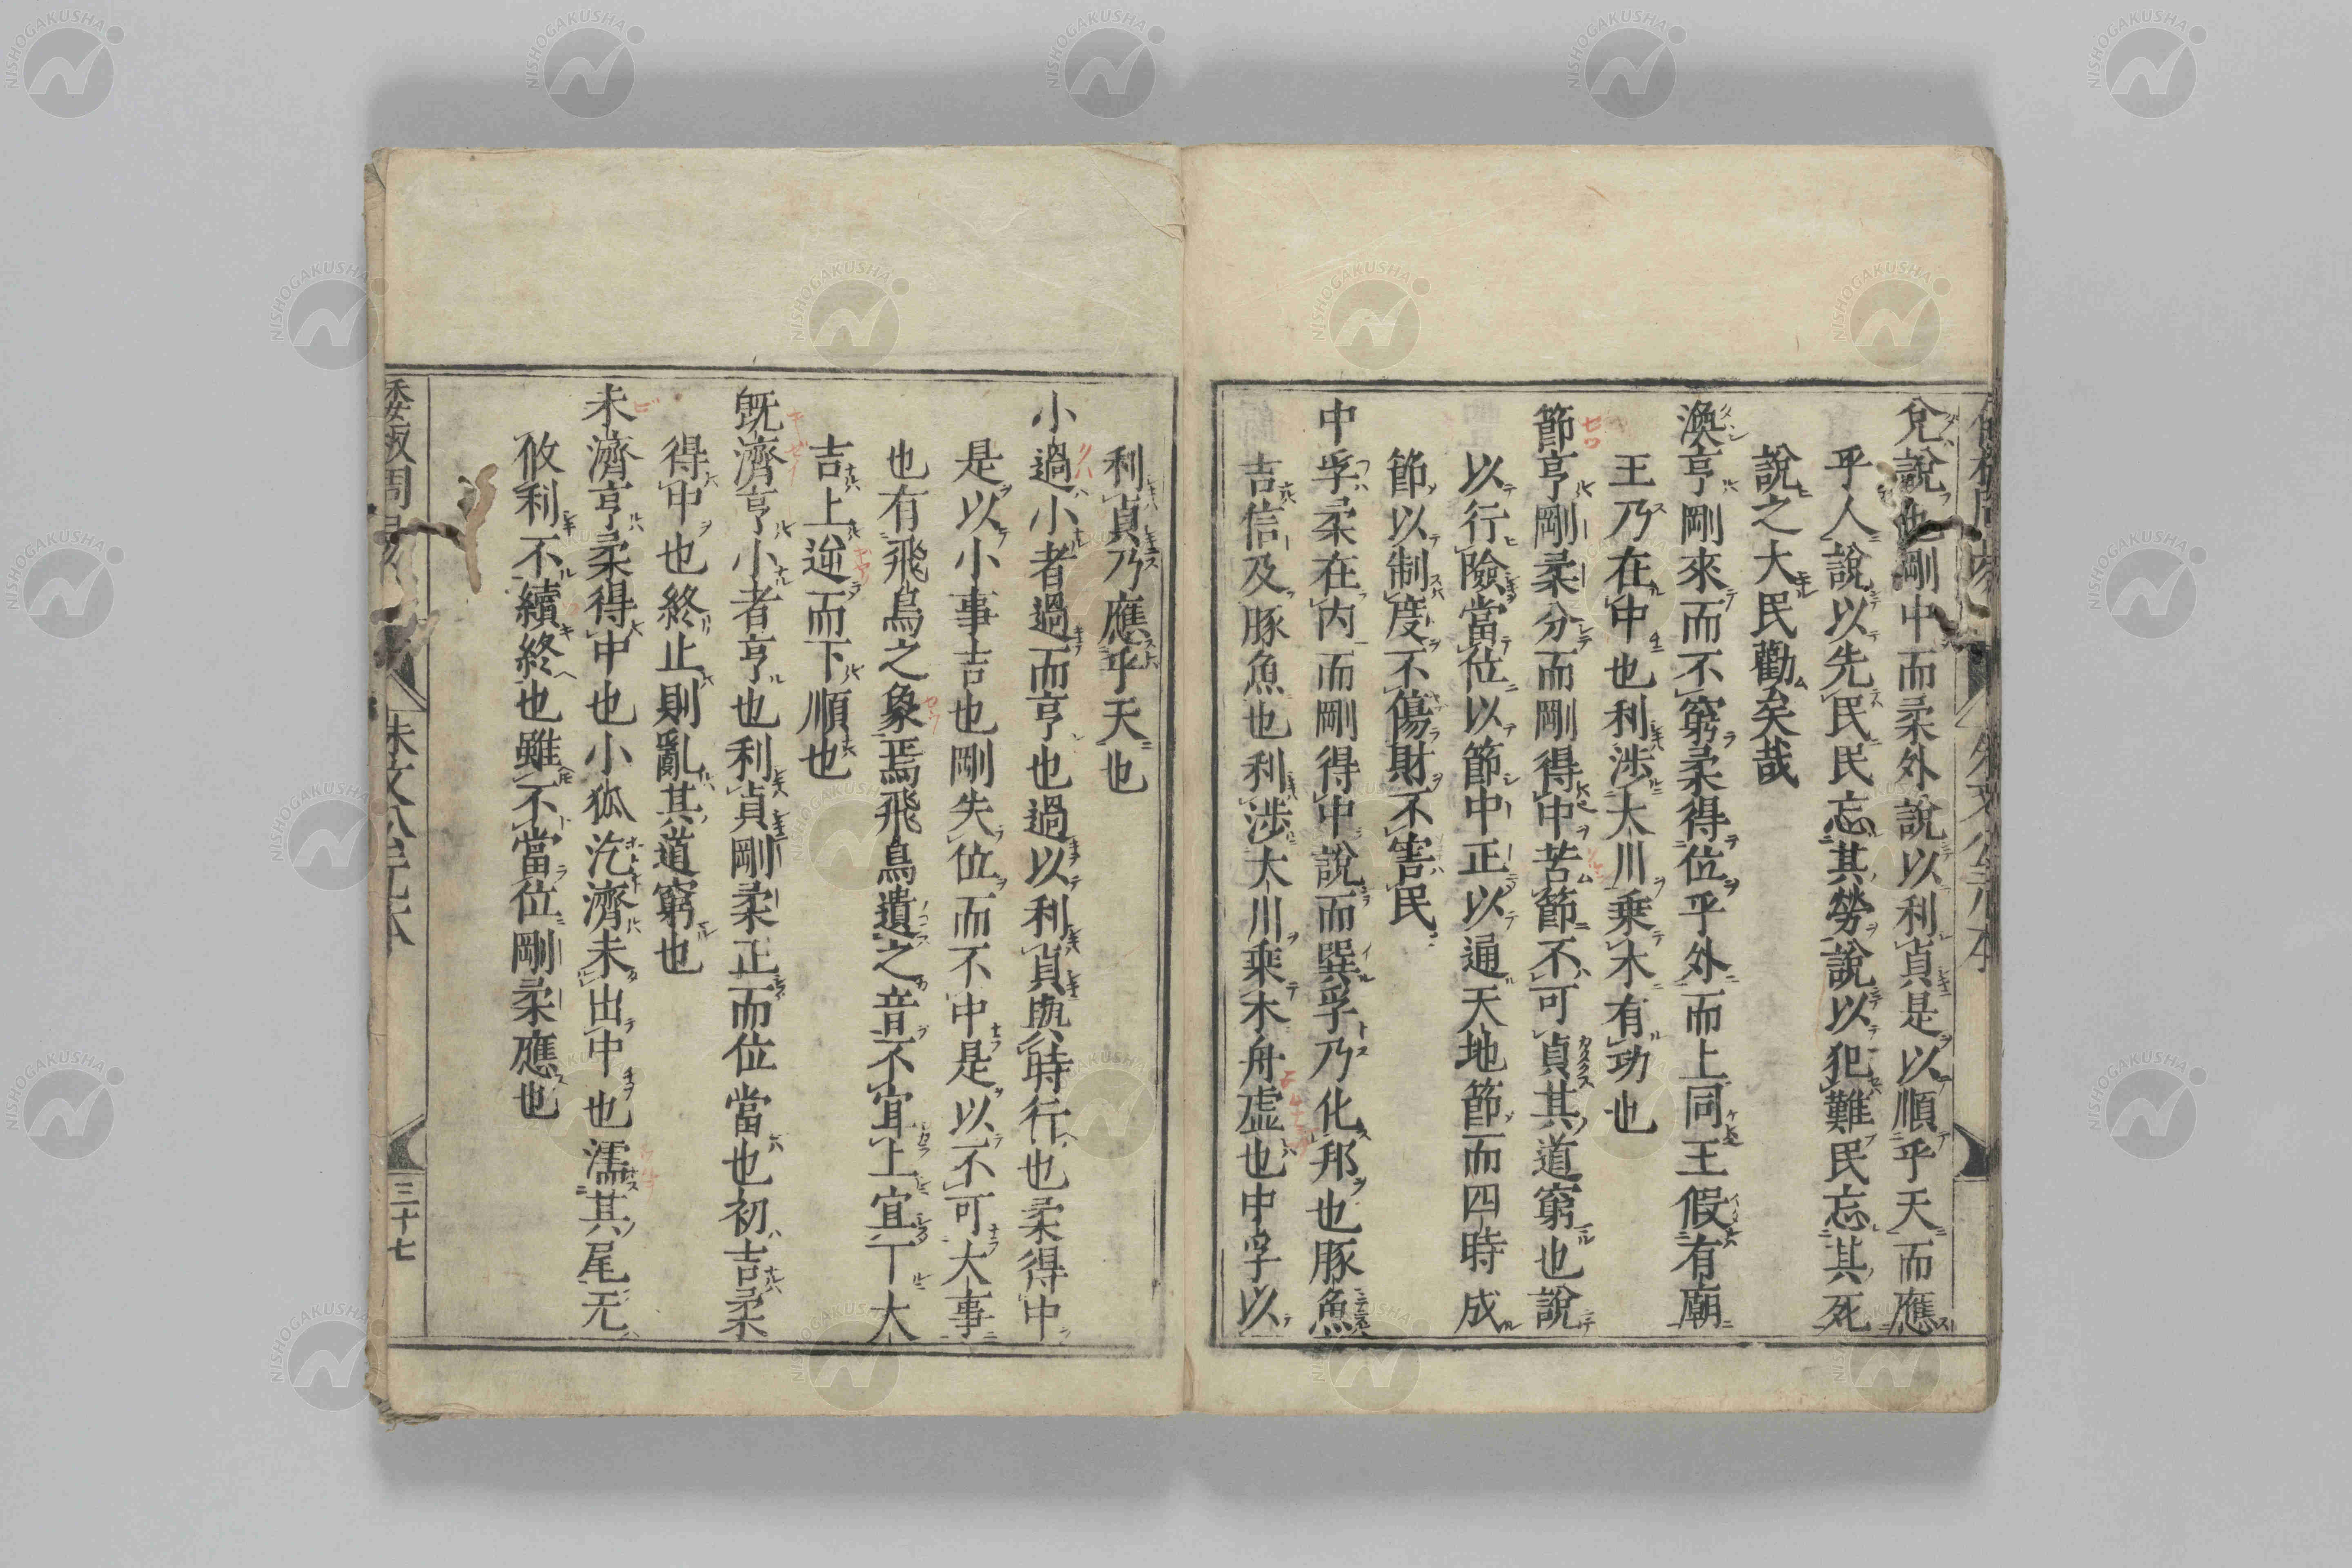 兌說也剛中而柔外說以利貞是以順乎天而應
乎人說以先民民忘其勞說以犯難民忘其死
說之大民勸矣哉
渙亨剛來而不窮柔得位乎外而上同王假有廟
王乃在中也利涉大川乘木有功也
節亨剛柔分而剛得中苦節不可貞其道窮也說
以行險當位以節中正以通天地節而四時成
節以制度不傷財不害民
中孚柔在內而剛得中說而巽孚乃化邦也豚魚
吉信及豚魚也利涉大川乘木舟虛也中孚以
利貞乃應乎天也
小過小者過而亨也過以利貞與時行也柔得中
是以小事吉也剛失位而不中是以不可大事
也有飛鳥之象焉飛鳥遺之音不宜上宜下大
吉上逆而下順也
既濟亨小者亨也利貞剛柔正而位當也初吉柔
得中也終止則亂其道窮也
未濟亨柔得中也小狐汔濟未出中也濡其尾无
攸利不續終也雖不當位剛柔應也
周易
朱文公
三十七
NISHOGAKUSHA